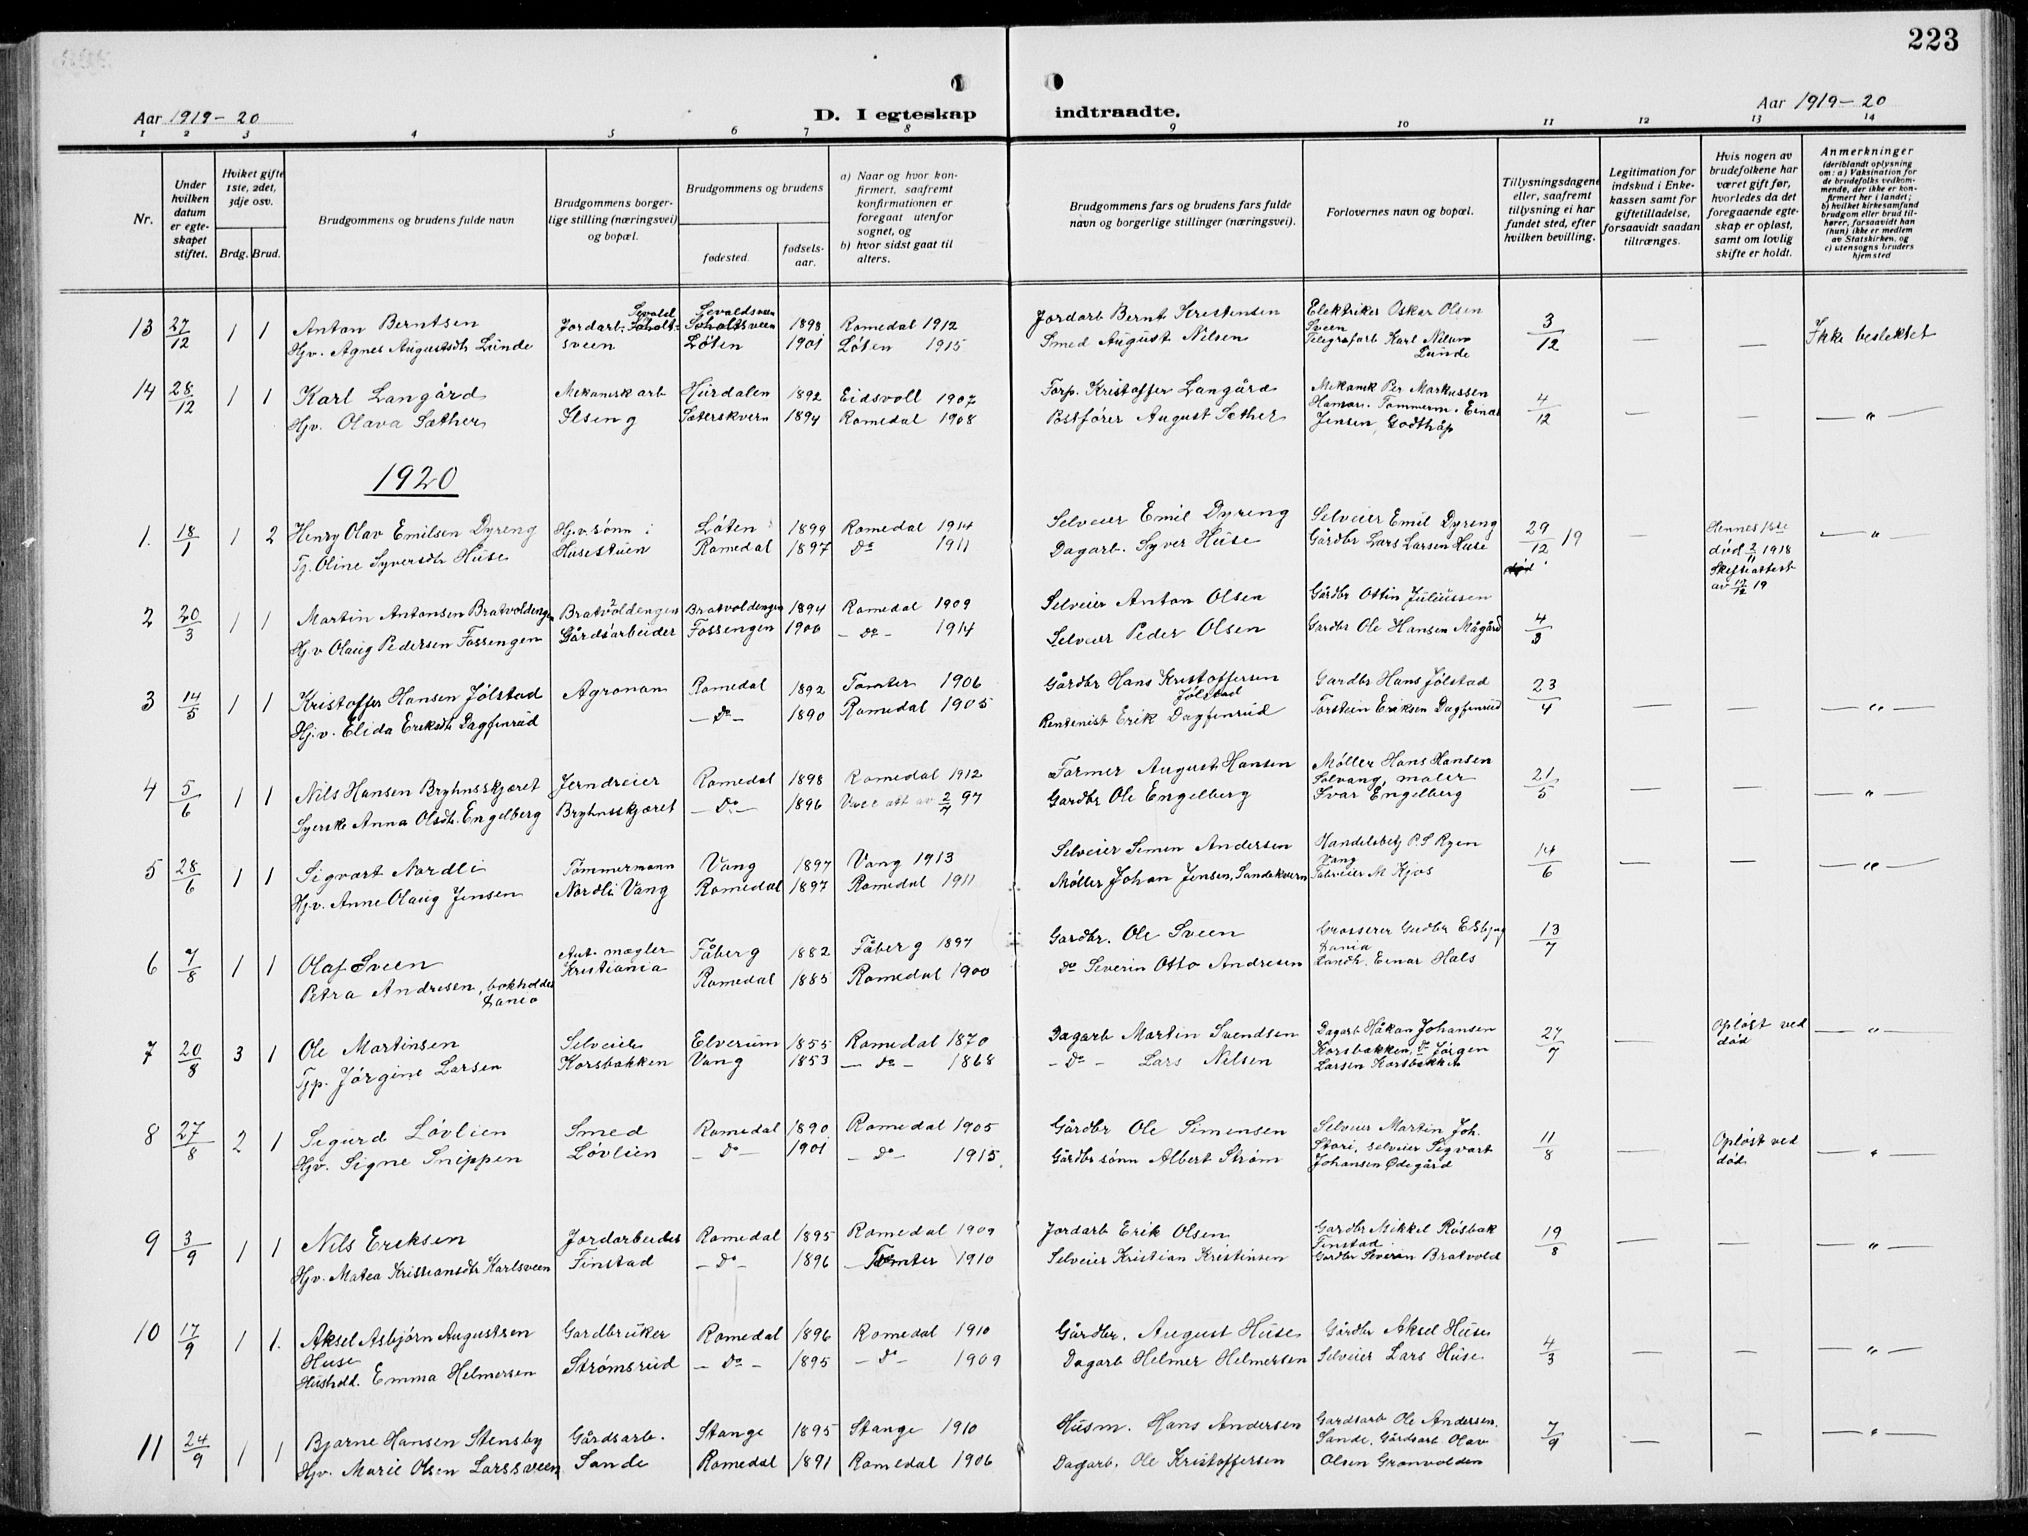 223
Aar 1919-20
D. I egteskap indtraadte.
Aar 1919-20
1 2 3 4 5 6 7 8 9 10 11 12 13 14
Nr.
Under hvilken datum er egteskapet stiftet.
Hvilket gifte 1ste, 2det, 3dje osv.
Brdg. Brud.
Brudgommens og brudens fulde navn
Brudgommens borgerlige stilling (næringsvei) og bopæl.
Brudgommens og brudens
fødested.
fødselsaar.
a) Naar og hvor konfirmert, saafremt konfirmationen er foregaat utenfor sognet, og
b) hvor sidst gaat til alters.
Brudgommens fars og brudens fars fulde navn og borgerlige stillinger (næringsvei).
Forlovernes navn og bopæl.
Tillysningsdagene eller, saafremt tillysning ei har fundet sted, efter hvilken bevilling.
Legitimation for indskud i Enkekassen samt for giftetilladelse, forsaavidt saadan tiltrænges.
Hvis nogen av brudefolkene har været gift før, hvorledes da det foregaaende egteskap er opløst, samt om lovlig skifte er holdt.
Anmerkninger
(deriblandt oplysning om: a) Vaksination for de brudefolks vedkommende, der ikke er konfirmert her i landet; b) hvilket kirkesamfund brudgom eller brud tilhører, forsaavidt han (hun) ikke er medlem av Statskirken, og c) utensogns bruders hjemsted
13 27/12 1 1 Anton Berntsen Jordarb. Sevaldsveen 1898 Romedal 1912 Jordarb Bernt Kristensen Elektriker Oskar Olsen Sveen 3/12 — — Ikke beslektet
Hjv. Agnes Augustsdtr Lunde sveen Løten 1901 Løten 1915 Smed August Nilsen Telegrafarb Karl Nilsen Lunde
14 28/12 1 1 Karl Langård Mekanisk arb Hurdalen 1892 Eidsvoll 1907 Forp. Kristoffer Langård Mekanik Per Markussen 4/12 — — — " —
Hjv. Olava Sæther Ilseng Sæterskvern 1894 Romedal 1908 Postfører August Sether Hamar. Tømmerm. Einar Jensen, Godthåp
1920
1. 18/1 1 2 Henry Olav Emilsen Dyreng Hjv. sønn i Løten 1899 Romedal 1914 Selveier Emil Dyreng Selveier Emil Dyreng 29/12 19 — Hennes 1ste død 2/11 1918 Skifteattest av 12/12 19 — " —
Tj. Oline Syversdtr Huse Husestuen Romedal 1897 Do 1911 Dagarb. Syver Huse Gårdbr Lars Larsen Huse
2 20/3 1 1 Martin Antonsen Bratvoldengen Bratvoldengen Bratvoldengen 1894 Romedal 1909 Selveier Anton Olsen Gårdbr Ottin Juliussen 4/3
Hjv Olaug Pedersen Fossengen Gårdsarbeider Fossengen 1900 — do — 1914 Selveier Peder Olsen Gardbr Ole Hansen Mågård
3 14/5 1 1 Kristoffer Hansen Jølstad Agronom Romedal 1892 Tomter 1906 Gårdbr Hans Kristoffersen Jølstad Gardbr Hans Jølstad 23/4 — — — " —
Hj.v. Elida Eriksdtr Dagfinrud — Do — 1890 Romedal 1905 Rentenist Erik Dagfinrud Torstein Eriksen Dagfinrud
4 5/6 1 1 Nils Hansen Bryhnsskjæret Jerndreier Romedal 1898 Romedal 1912 Former August Hansen Møller Hans Hansen 21/5 — — — " —
Syerske Anna Olsdtr. Engelberg Bryhnsskjæret — Do — 1896 Vacc att av 2/7 97 Gardbr Ole Engelberg Solvang, maler Ivar Engelberg
5 28/6 1 1 Sigvart Nordli Tømmermann Vang 1897 Vang 1913 Selveier Simen Andersen Handelsbetj P. S Ryen Vang 14/6 — — — " —
Hjv. Anne Olaug Jensen Nordli Vang Romedal 1897 Romedal 1911 Møller Johan Jensen, Sandekvern M Kjos
6 7/8 1 1 Olaf Sveen Aut. mægler Fåberg 1882 Fåberg 1897 Gardbr. Ole Sveen Grosserer Gudbr Elsbjug 13/7
Petra Andresen, bokholder Kristiania Romedal 1885 Romedal 1900 do Severin Otto Andresen Landh. Einar Hals
7 20/8 3 1 Ole Martinsen Selveier Elverum 1855 Romedal 1870 Dagarb Martin Svendsen Dagarb Håkon Johansen 27/7 — Opløst ved død — " —
Tjp. Jørgine Larsen Korsbakken Vang 1853 — do — 1868 — Do — Lars Nilsen Korsbakken, do Jørgen Larsen Korsbakken
8 27/8 2 1 Sigurd Løvlien Smed Romedal 1890 Romedal 1905 Gårdbr Ole Simensen Selveier Martin Joh. 11/8 — Opløst ved død — " —
Hjv. Signe Snippen Løvlien — Do — 1901 — Do — 1915. Gårdbr sønn Albert Strøm Stori, selveier Sigvart Johansen Ødegård
9 3/9 1 1 Nils Eriksen Jordarbeider Romedal 1895 Romedal 1909 Jordarb Erik Olsen Gardbr Mikkel Røsbak Finstad 19/8 — — — " —
Hjv. Matea Kristiansdtr Karlsveen Finstad — Do — 1896 — Tomter 1910 Selveier Kristian Kristinsen Gardbr Severin Bratvold
10 17/9 1 1. Aksel Asbjørn Augustsen Huse Gardbruker Romedal 1896 Romedal 1910 Gårdbr. August Huse Gårdbr Aksel Huse 4/3 — — — " —
Hushold. Emma Helmersen Strømsrud — Do — 1895 — Do — 1909 Dagarb Helmer Helmersen Selveier Lars Huse
11 24/9 1 1 Bjarne Hansen Stensby Gårdsarb. Stange 1895 Stange 1910 Husm. Hans Andersen Gardsarb Ole Andersen. 7/9 — — — " —
Hjv. Marie Olsen Larssveen Sande Romedal 1891 Romedal 1906 Dagarb. Ole Kristoffersen Sande, Gårdsarb. Olav Olsen Grønvolden